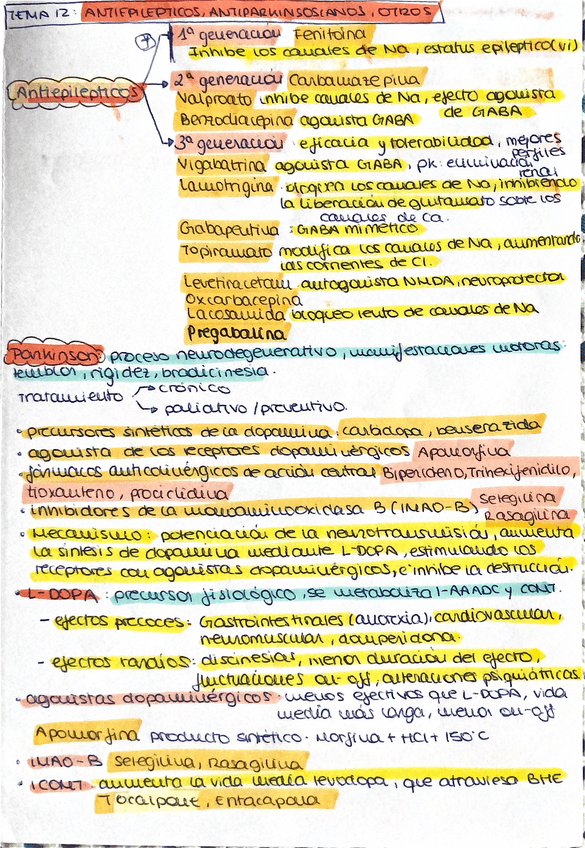 TEMA 12: ANTIEPILEPTICOS, ANTIPARKINSONIANOS, OTROS
1ª generación Fenitoína
Inhibe los canales de Na, estatus epileptico (vi)
Antiepilepticos
2ª generación Carbamazepina
Valproato inhibe canales de Na, efecto agonista
de GABA
Benzodiacepina agonista GABA
3ª generación : eficacia y tolerabilidad, mejores
perfiles
Vigabatrina agonista GABA, pk: eliminación
renal
Lamotrigina bloquea los canales de Na, inhibiendo
la liberación de glutamato sobre los
canales de Ca.
Gabapentina : GABA mimético
Topiramato modifica los canales de Na, aumentando
las corrientes de Cl.
Levetiracetam : antagonista NMDA, neuroprotector
Oxcarbacepina
Lacosamida bloqueo lento de canales de Na
Pregabalina
Parkinson: proceso neurodegenerativo, manifestaciones motoras:
temblor, rigidez, bradicinesia.
Tratamiento → crónico
→ paliativo / preventivo.
· precursores sintéticos de la dopamina: carbidopa, benserazida
· agonista de los receptores dopaminérgicos Apomorfina
· fármacos anticolinérgicos de acción central Biperideno, Trihexifenidilo,
tioxanteno, prociclidina
· inhibidores de la monoaminooxidasa B (IMAO-B) Selegilina
Rasagilina
· Mecanismo: potenciación de la neurotransmisión, aumenta
la síntesis de dopamina mediante L-DOPA, estimulando los
receptores con agonistas dopaminérgicos, e inhibe la destrucción.
· L-DOPA : precursor fisiológico, se metaboliza l-AAADC y COMT.
- efectos precoces: Gastrointestinales (anorexia), cardiovascular,
neuromuscular, domperidona.
- efectos tardíos: discinesias, menor duración del efecto,
fluctuaciones on-off, alteraciones psiquiátricas
· agonistas dopaminérgicos: menos efectivos que L-DOPA, vida
media más larga, menor on-off
Apomorfina producto sintético. Morfina + HCl + 150°C
· IMAO-B Selegilina, Rasagilina
· ICOMT aumenta la vida media levodopa, que atraviesa BHE
Tocalpone, Entacapona